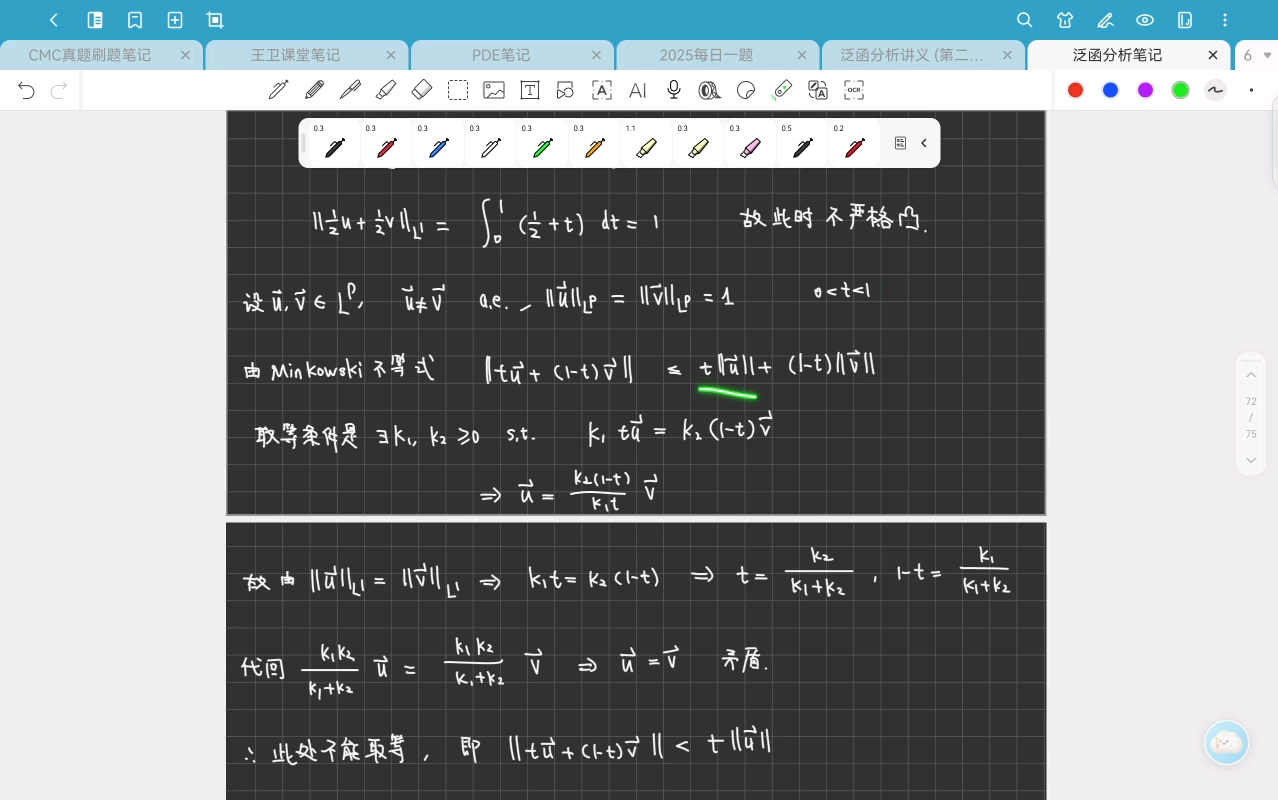 CMC真题刷题笔记 王卫课堂笔记 PDE笔记 2025每日一题 泛函分析讲义 (第二... 泛函分析笔记 6
AI A OCR
0.3 0.3 0.3 0.3 0.3 0.3 1.1 0.3 0.3 0.5 0.2
‖½u + ½v‖_{L¹} = ∫₀¹ (½ + t) dt = 1 故此时不严格凸.
设 u⃗, v⃗ ∈ L^p, u⃗ ≠ v⃗ a.e., ‖u⃗‖_{L^p} = ‖v⃗‖_{L^p} = 1 0 < t < 1
由 Minkowski 不等式 ‖tu⃗ + (1-t)v⃗‖ ≤ t‖u⃗‖ + (1-t)‖v⃗‖
取等条件是 ∃ k₁, k₂ ≥ 0 s.t. k₁ t u⃗ = k₂ (1-t) v⃗
⇒ u⃗ = \frac{k₂(1-t)}{k₁t} v⃗
故由 ‖u⃗‖_{L¹} = ‖v⃗‖_{L¹} ⇒ k₁t = k₂(1-t) ⇒ t = \frac{k₂}{k₁+k₂}, 1-t = \frac{k₁}{k₁+k₂}
代回 \frac{k₁k₂}{k₁+k₂} u⃗ = \frac{k₁k₂}{k₁+k₂} v⃗ ⇒ u⃗ = v⃗ 矛盾.
∴ 此处不能取等, 即 ‖tu⃗ + (1-t)v⃗‖ < t‖u⃗‖
72
/
75